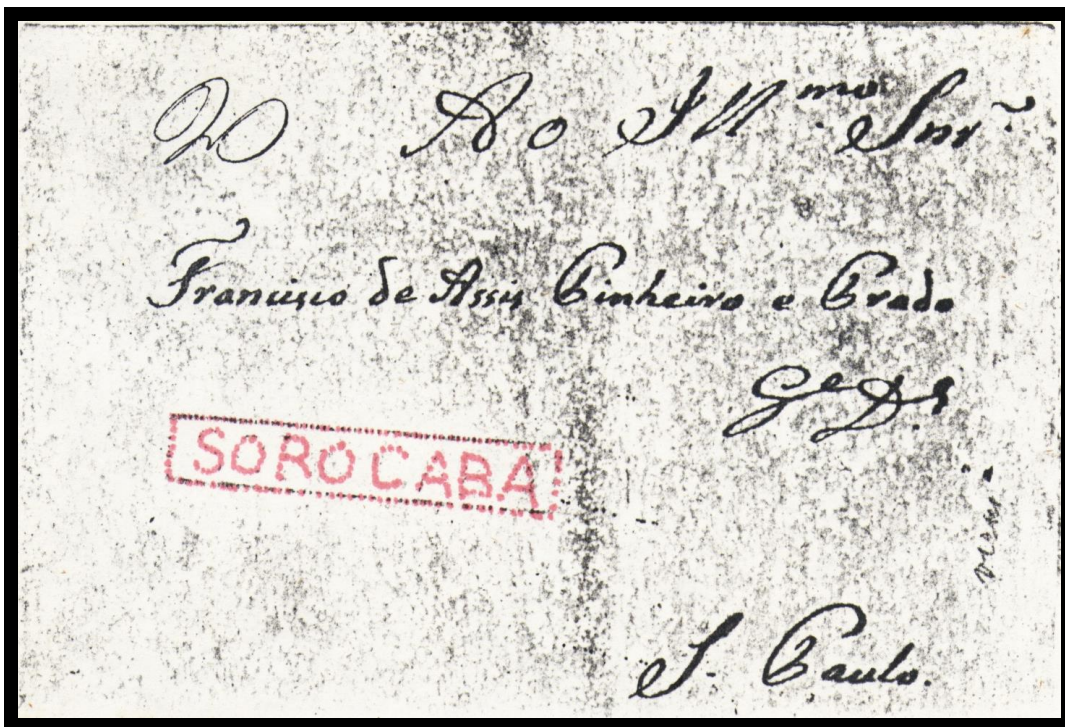 20 Ao Illmo. Snr.
Francisco de Assis Pinheiro e Prado
Ge. Ds.
SOROCABA
S. Paulo.